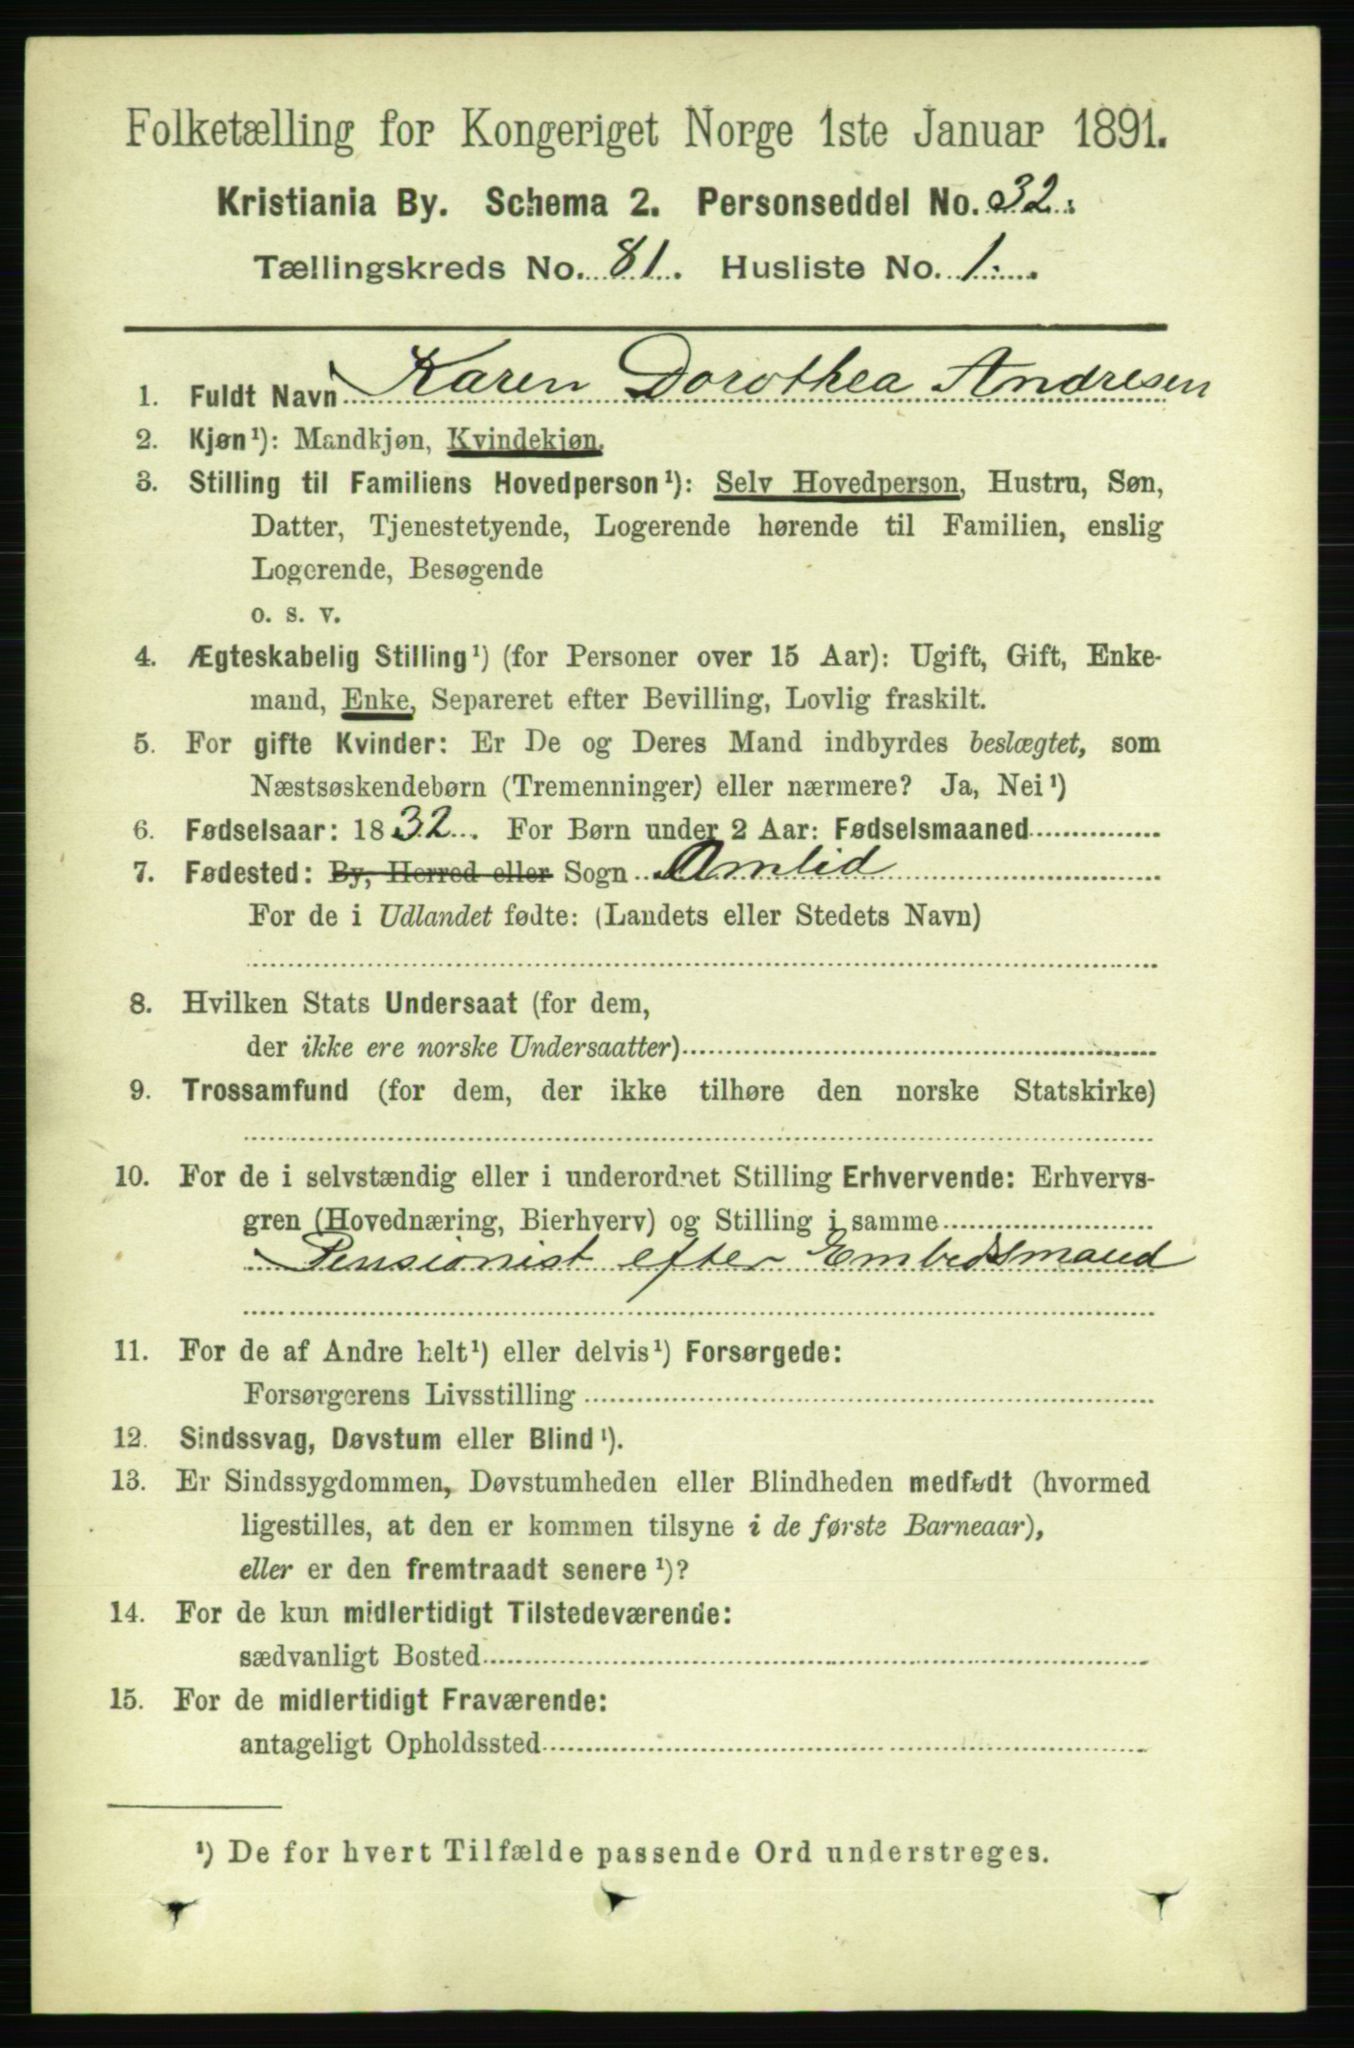 Folketælling for Kongeriget Norge 1ste Januar 1891.
Kristiania By. Schema 2. Personseddel No. 32.
Tællingskreds No. 81. Husliste No. 1.
1. Fuldt Navn Karen Dorothea Andresen
2. Kjøn¹): Mandkjøn, Kvindekjøn.
3. Stilling til Familiens Hovedperson¹): Selv Hovedperson, Hustru, Søn,
Datter, Tjenestetyende, Logerende hørende til Familien, enslig
Logerende, Besøgende
o. s. v.
4. Ægteskabelig Stilling¹) (for Personer over 15 Aar): Ugift, Gift, Enke-
mand, Enke, Separeret efter Bevilling, Lovlig fraskilt.
5. For gifte Kvinder: Er De og Deres Mand indbyrdes beslægtet, som
Næstsøskendebørn (Tremenninger) eller nærmere? Ja, Nei¹)
6. Fødselsaar: 1832. For Børn under 2 Aar: Fødselsmaaned
7. Fødested: By, Herred eller Sogn Amlid
For de i Udlandet fødte: (Landets eller Stedets Navn)
8. Hvilken Stats Undersaat (for dem,
der ikke ere norske Undersaatter)
9. Trossamfund (for dem, der ikke tilhøre den norske Statskirke)
10. For de i selvstændig eller i underordnet Stilling Erhvervende: Erhvervs-
gren (Hovednæring, Bierhverv) og Stilling i samme
Pensionist efter Embedsmand
11. For de af Andre helt¹) eller delvis¹) Forsørgede:
Forsørgerens Livsstilling
12. Sindssvag, Døvstum eller Blind¹).
13. Er Sindssygdommen, Døvstumheden eller Blindheden medfødt (hvormed
ligestilles, at den er kommen tilsyne i de første Barneaar),
eller er den fremtraadt senere¹)?
14. For de kun midlertidigt Tilstedeværende:
sædvanligt Bosted
15. For de midlertidigt Fraværende:
antageligt Opholdssted
¹) De for hvert Tilfælde passende Ord understreges.